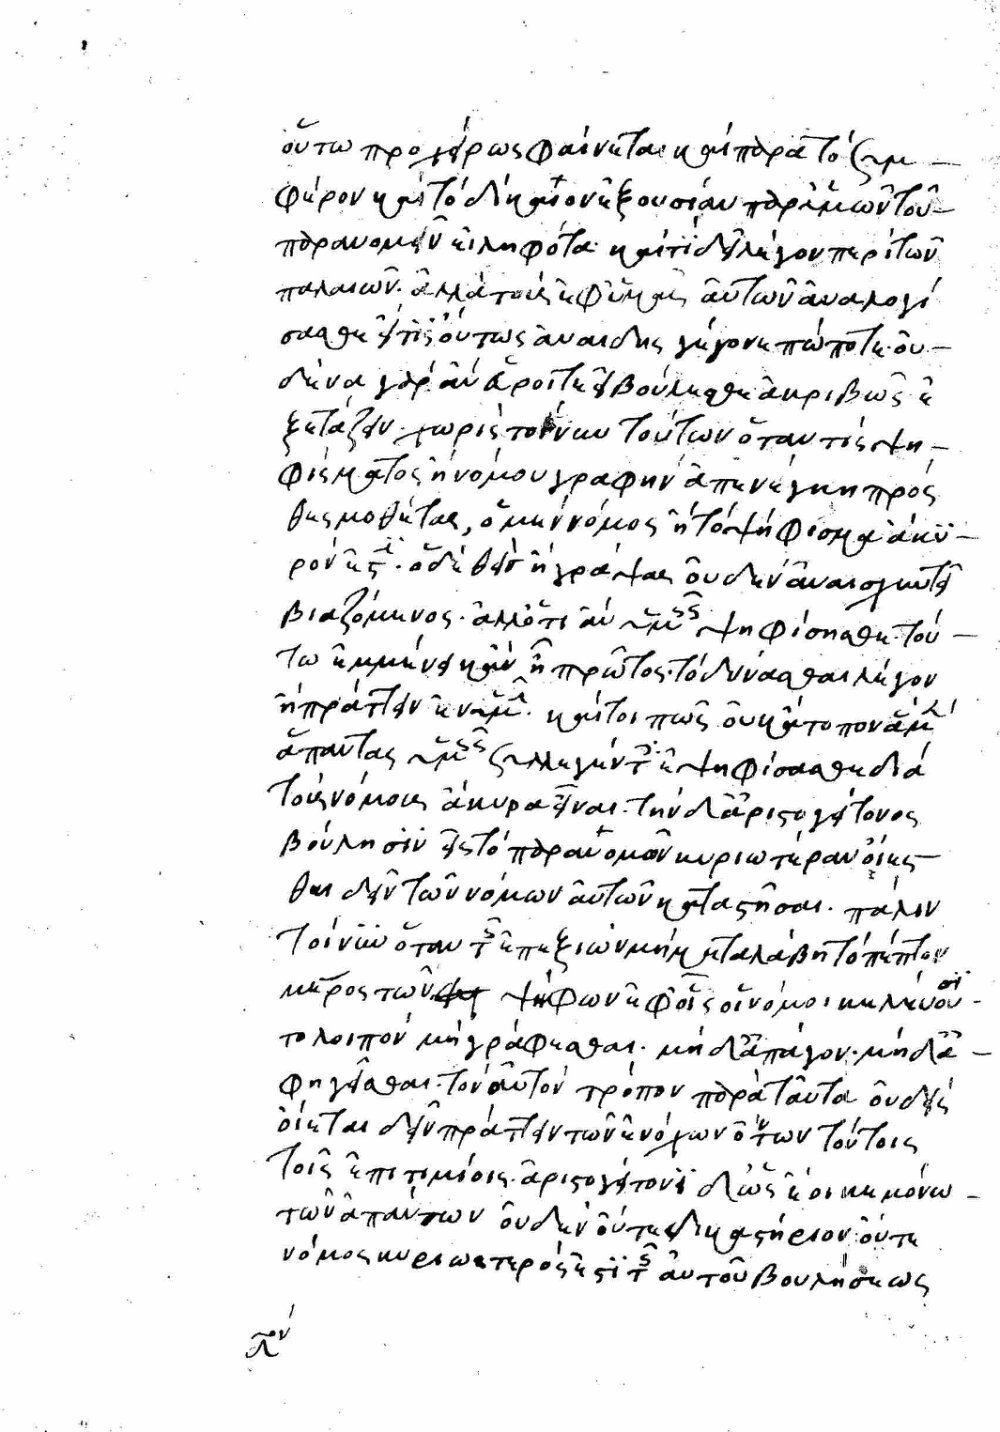 οὕτω προχείρως φαίνεται καὶ παρὰ τὸ συμ-
φέρον καὶ τὸ δίκαιον ἐξουσίαν παρ' ὑμῶν τοῦ
παρανομεῖν εἰληφότα· καὶ τί δεῖ λέγειν περὶ τῶν
παλαιῶν· ἀλλὰ τοὺς ἐφ' ὑμῶν αὐτῶν ἀναλογί
σασθε εἴ τις οὕτως ἀναιδὴς γέγονε πώποτε· οὐ-
δένα γὰρ ἂν εὕροιτε εἰ βούλεσθε ἀκριβῶς ἐ
ξετάζειν· χωρὶς τοίνυν τούτων ὅταν τίς ψη-
φίσματος ἢ νόμου γραφὴν ἀπενέγκη πρὸς
θεσμοθέτας, ὁ μὲν νόμος ἢ τὸ ψήφισμα ἄκυ-
ρόν ἐστι· ὁ δὲ θεὶς ἢ γράψας οὐδὲν ἀναισχυντεῖ
βιαζόμενος· ἀλλ' ὅτι ἂν ὑμῖν ψηφίσησθε· τού-
τω ἐμμένει κἂν ἦ πρῶτος τὸ δύνασθαι λέγειν
ἢ πράττειν ἐν ὑμῖν· καίτοι πῶς οὐκ ἄτοπον ἃ μὲν
ἅπαντας ὑμᾶς συλλεγέντας ἐψηφίσασθε διὰ
τοὺς νόμους ἄκυρα εἶναι· τὴν δ' ἀριστογείτονος
βούλησιν εἰς τὸ παρανομεῖν κυριωτέραν οἴεσ-
θαι δεῖν τῶν νόμων αὐτῶν καταστῆσαι· πάλιν
τοίνυν ὅταν τις ἐπεξιὼν μὴ μεταλάβη τὸ πέμπτον
μέρος τῶν ψήφων ἐφ' οἷς οἱ νόμοι κελεύουσι
τολοιπὸν μὴ γράφεσθαι· μὴ δ' ἀπάγειν· μὴ δ' ἐ-
φηγεῖσθαι· τὸν αὐτὸν τρόπον παρὰ ταῦτα οὐδεὶς
οἴεται δεῖν πράττειν τῶν ἐνόχων ὄντων τούτοις
τοῖς ἐπιτιμίοις· ἀριστογείτονι δ' ὡς ἔοικε μόνω
τῶν ἁπάντων οὐδὲν οὔτε δικαστήριον οὔτε
νόμος κυριώτερός ἐστι τῆς αὐτοῦ βουλήσεως